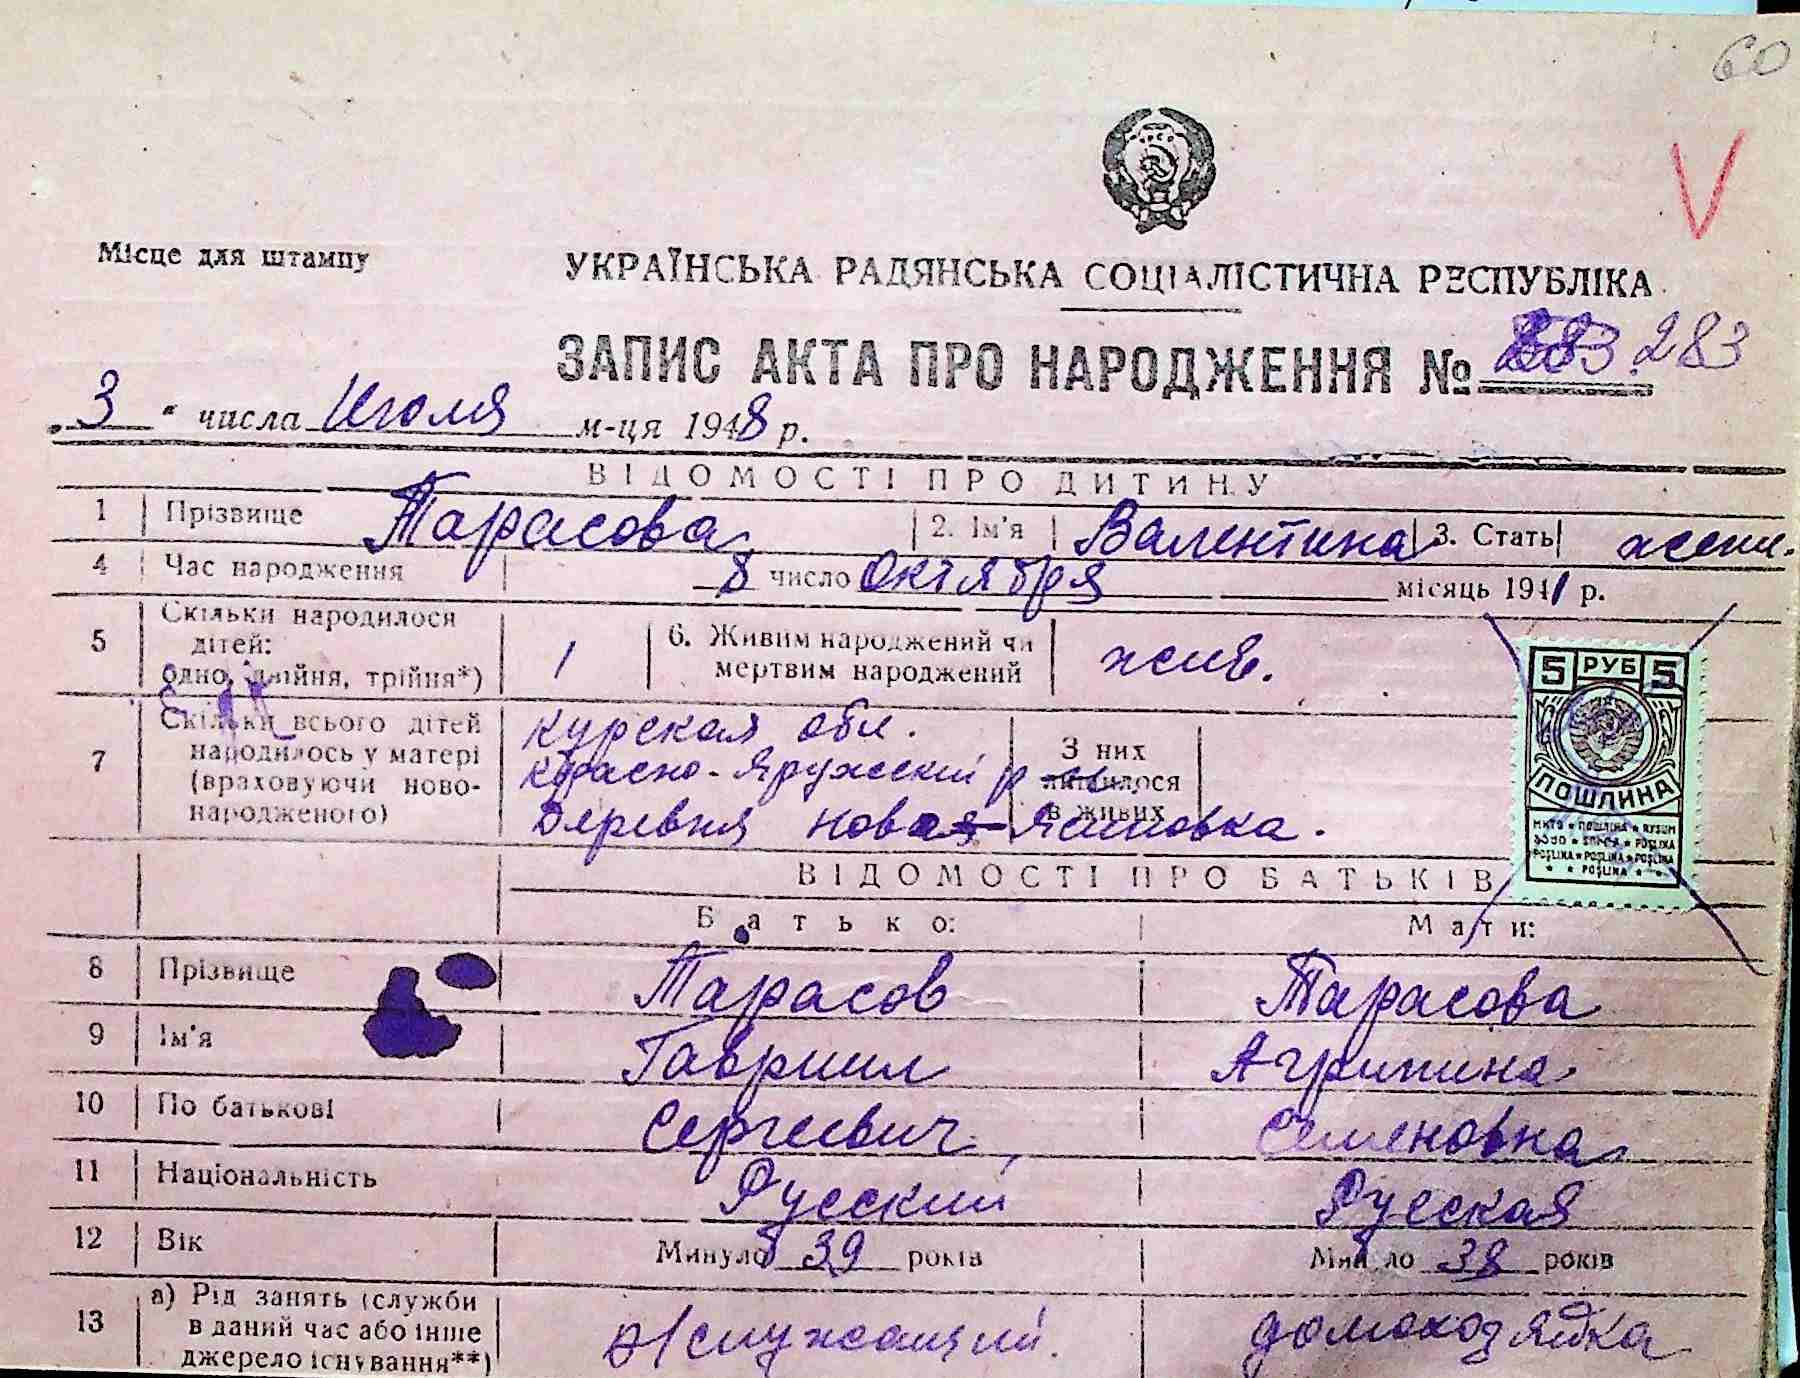 60
V
Місце для штампу
УКРАЇНСЬКА РАДЯНСЬКА СОЦІАЛІСТИЧНА РЕСПУБЛІКА
ЗАПИС АКТА ПРО НАРОДЖЕННЯ № 283
„3" числа Июля м-ця 1948 р.
ВІДОМОСТІ ПРО ДИТИНУ
1 Прізвище Тарасова 2. Ім'я Валентина 3. Стать женск.
4 Час народження 8 число Октября місяць 1941 р.
5 Скільки народилося дітей: одно, двійня, трійня*) 1 6. Живим народжений чи мертвим народжений жив.
7 Скільки всього дітей народилось у матері (враховуючи новонародженого) З них лишилося в живих
Курская обл.
Красно-Яружский р-н
Деревня Новая-
5 РУБ 5
ПОШЛИНА
ВІДОМОСТІ ПРО БАТЬКІВ
Батько: Мати:
8 Прізвище Тарасов Тарасова
9 Ім'я Гавриил Агрипина
10 По батькові Сергеевич Семеновна
11 Національність Русский Русская
12 Вік Минуло 39 років Минуло 38 років
13 а) Рід занять (служби в даний час або інше джерело існування**) служащий. домохозяйка